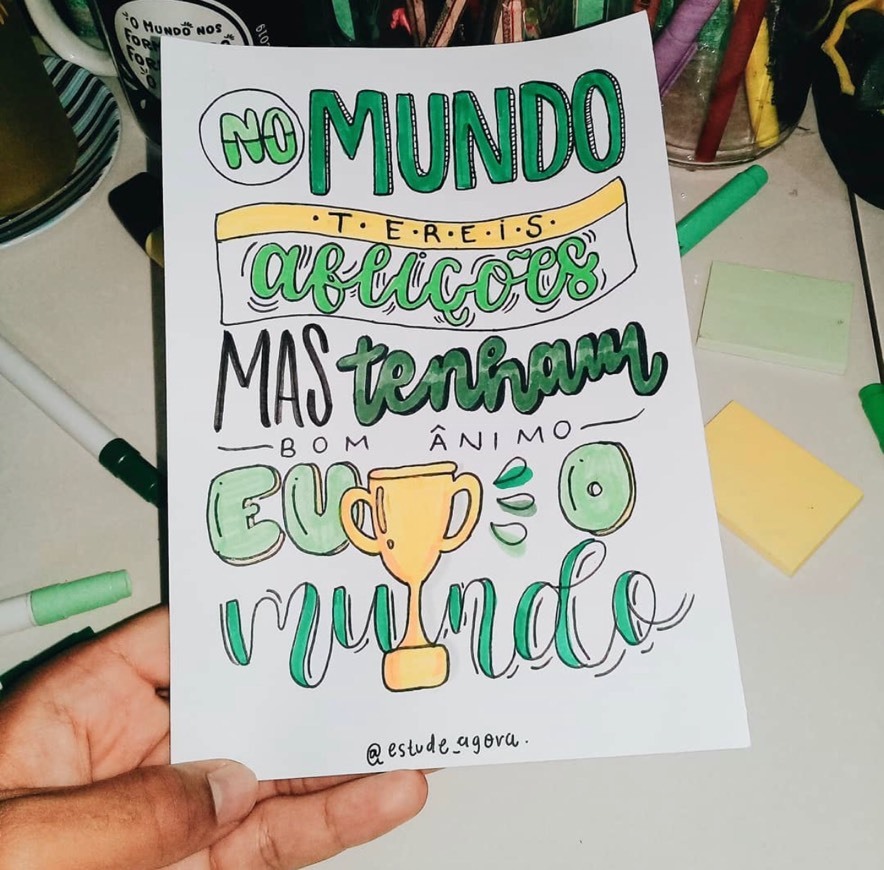 O MUNDO NOS
2019
NO MUNDO
·T·E·R·E·I·S·
aflições
MAS tenham
BOM ÂNIMO
EU O
mundo
@estude_agora.